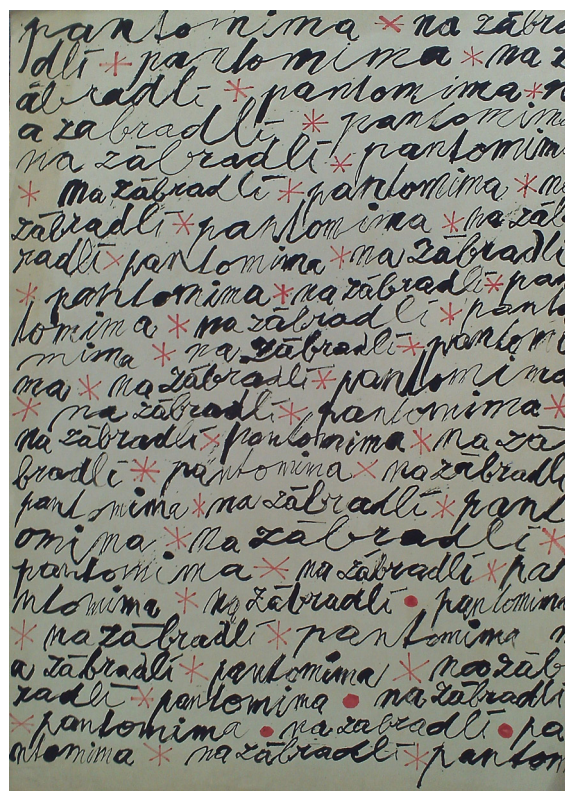 pantomima * na zábra
dlí * pantomima * na z
ábradlí * pantomima * n
a zabradlí * pantomim
na zábradlí * pantomim
* na zábradlí * pantomima * n
zábradlí * pantomima * na záb
radlí * pantomima * na zábradlí
* pantomima * na zábradlí * pan
tomima * na zábradlí * panto
mima * na zábradlí * pantomi
ma * na zábradlí * pantomima
* na zábradlí * pantomima *
na zábradlí * pantomima * na zá
bradlí * pantomima * na zábradlí
pantomima * na zábradlí * pant
omima * na zábradlí *
pantomima * na zábradlí * pa
ntomima * na zábradlí • pantomima
* na zábradlí * pantomima n
a zábradlí * pantomima * na záb
radlí * pantomima • na zábradlí
* pantomima • na zábradlí • pa
ntomima * na zábradlí * pantom